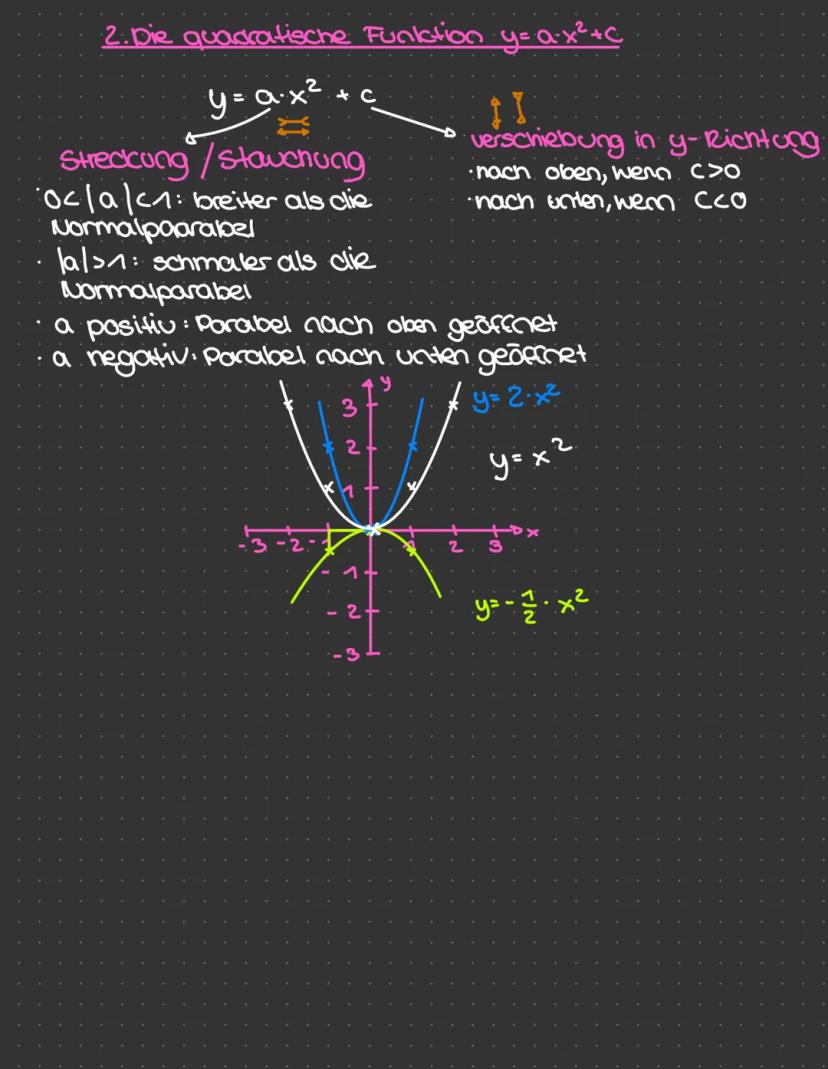 2. Die quadratische Funktion y=a·x²+c
y = a·x² + c
Streckung / Stauchung
· 0<|a|<1: breiter als die
Normalpaarabel
· |a|>1: schmaler als die
Normalparabel
· a positiv: Parabel nach oben geöffnet
· a negativ: Parabel nach unten geöffnet
verschiebung in y-Richtung
· nach oben, wenn C>0
· nach unten, wenn C<0
y
3
2
1
-3 -2 -1 1 2 3 x
-1
-2
-3
y= 2·x²
y= x²
y=-1/2·x²